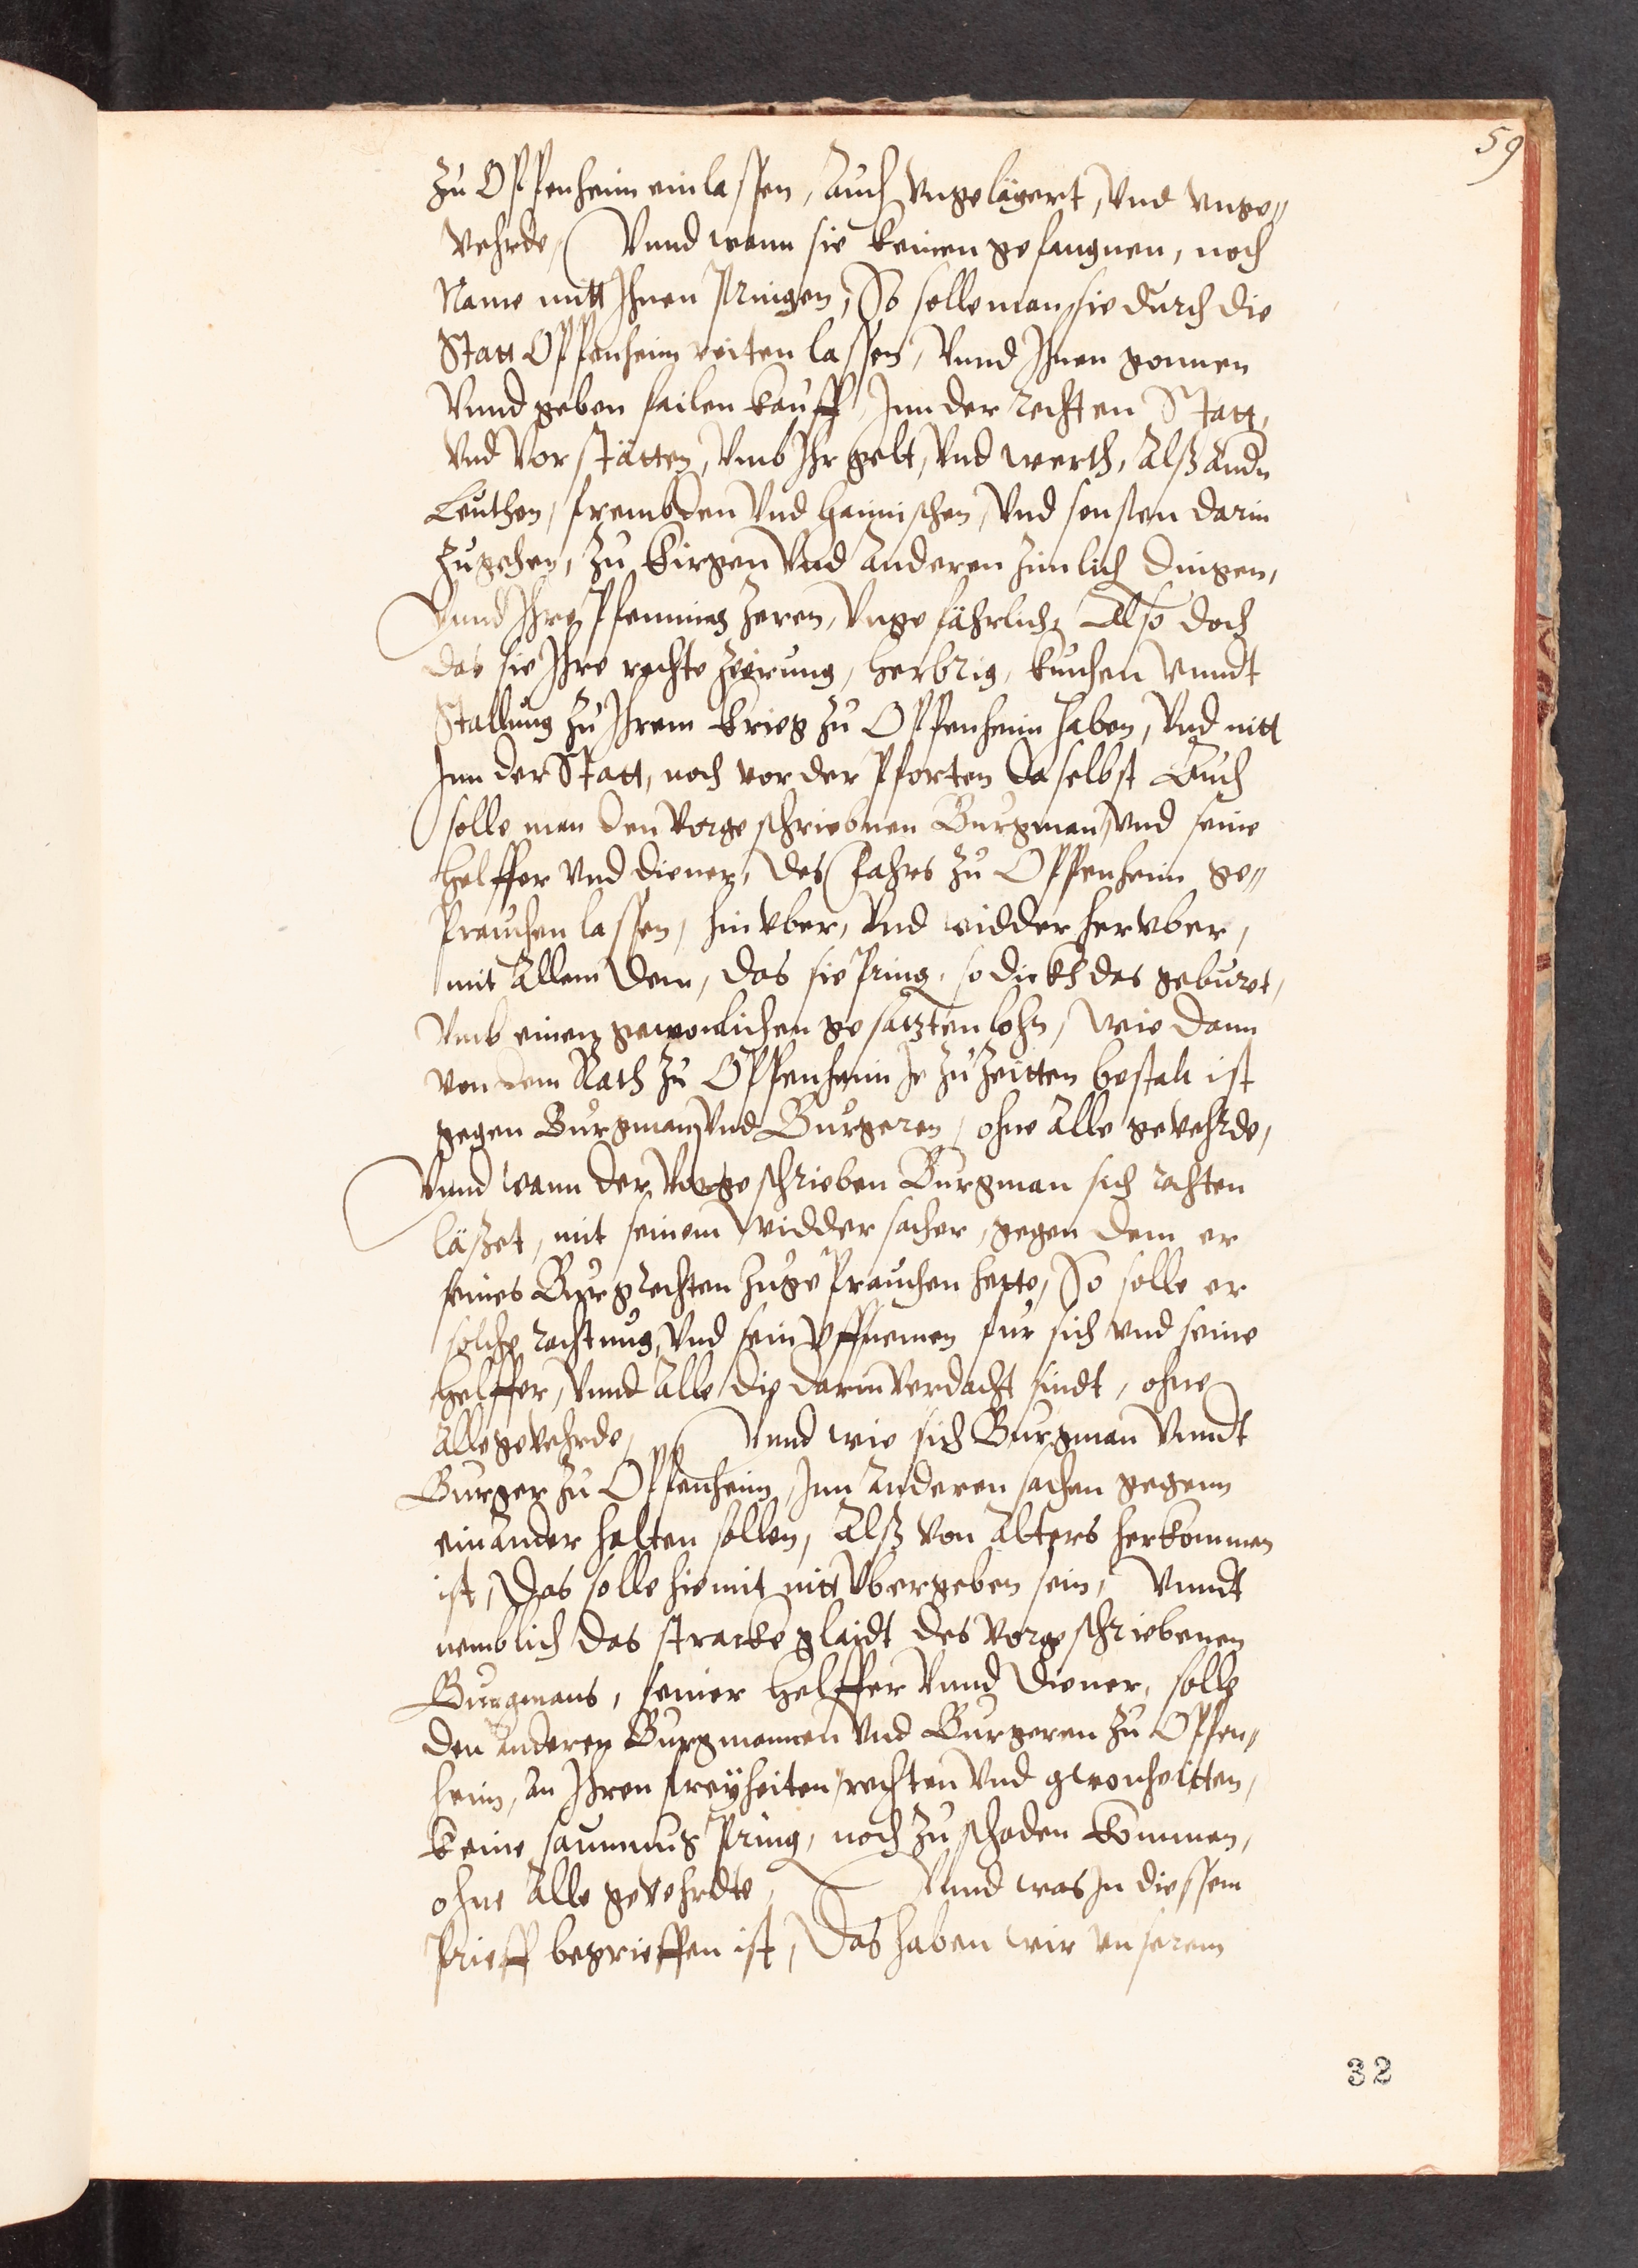 59
zu Oppenheim einlassen, Auch Vngelägert, Vnd Vnge„
Vehrde, Vnnd wann sie keinen gefangnen, noch
Name mitt Ihnen Pringen, So solle man sie durch die
Statt Oppenheim reiten lassen, Vnnd Ihnen gonnen
Vnnd geben failen kauff, Inn der rechten Statt,
Vnd Vorstätten, Vmb Ihr gelt, Vnd werth, Alß Andn
Leuthen, frembden Vnd haimischen, Vnd sonsten darin
zugehen, zu Kirgen Vnd Anderen zimlich dingen,
Vnnd Ihre Pfenning zeren, Vngefährlich, Also doch
das sie Ihre rechte zerung, herbrig, kuchen Vnndt
Stallung zu Ihrem krieg zu Oppenheim haben, Vnd nitt
Inn der Statt, noch vor der Pforten daselbst Auch
solle man den Vorgeschriebnen Burgman, Vnd seine
helffer Vnd diener, des fahrs zu Oppenheim ge„
Prauchen lassen, hinVber, Vnd widder herVber,
mit Allem dem, das sie Pring, so dickh das geburet,
Vmb einen gewonlichen gesatzten lohn, wie dann
von dem Rath zu Oppenheim Je zu Zeitten bestalt ist
gegen Burgman Vnd Burgeren, ohne Alle geVehrde,
Vnnd wann der Vorgeschrieben Burgman sich rechten
läßet, mit seinem widdersacher, gegen dem er
seines Burgrechten zugePrauchen hette, So solle er
solche rachtung, Vnd sein Vffnemen fur sich vnd seine
helffer, Vnnd Alle die darin Verdacht sindt, ohne
Alle geVehrde, Vnnd wie sich Burgman Vnndt
Burger zu Oppenheim, Inn Anderen sachen gegenn
einAnder halten sollen, Alß Von Alters herkommen
ist, Das solle hiemit nitt Vbergeben sein, Vnndt
nemblich das stracke glaidt des Vorgeschriebenen
Burgmans, seiner helffer Vnnd Diener, solle
den Anderen Burgmannen Vnd Burgeren zu Oppen„
heim, an Ihren freyheiten, rechten Vnd gwonheitten,
keine saumnus Pring, noch zu schaden kommen,
ohne Alle geVehrdte, Vnnd was In diessem
Prieff begrieffen ist, Das haben wir vnserem
32